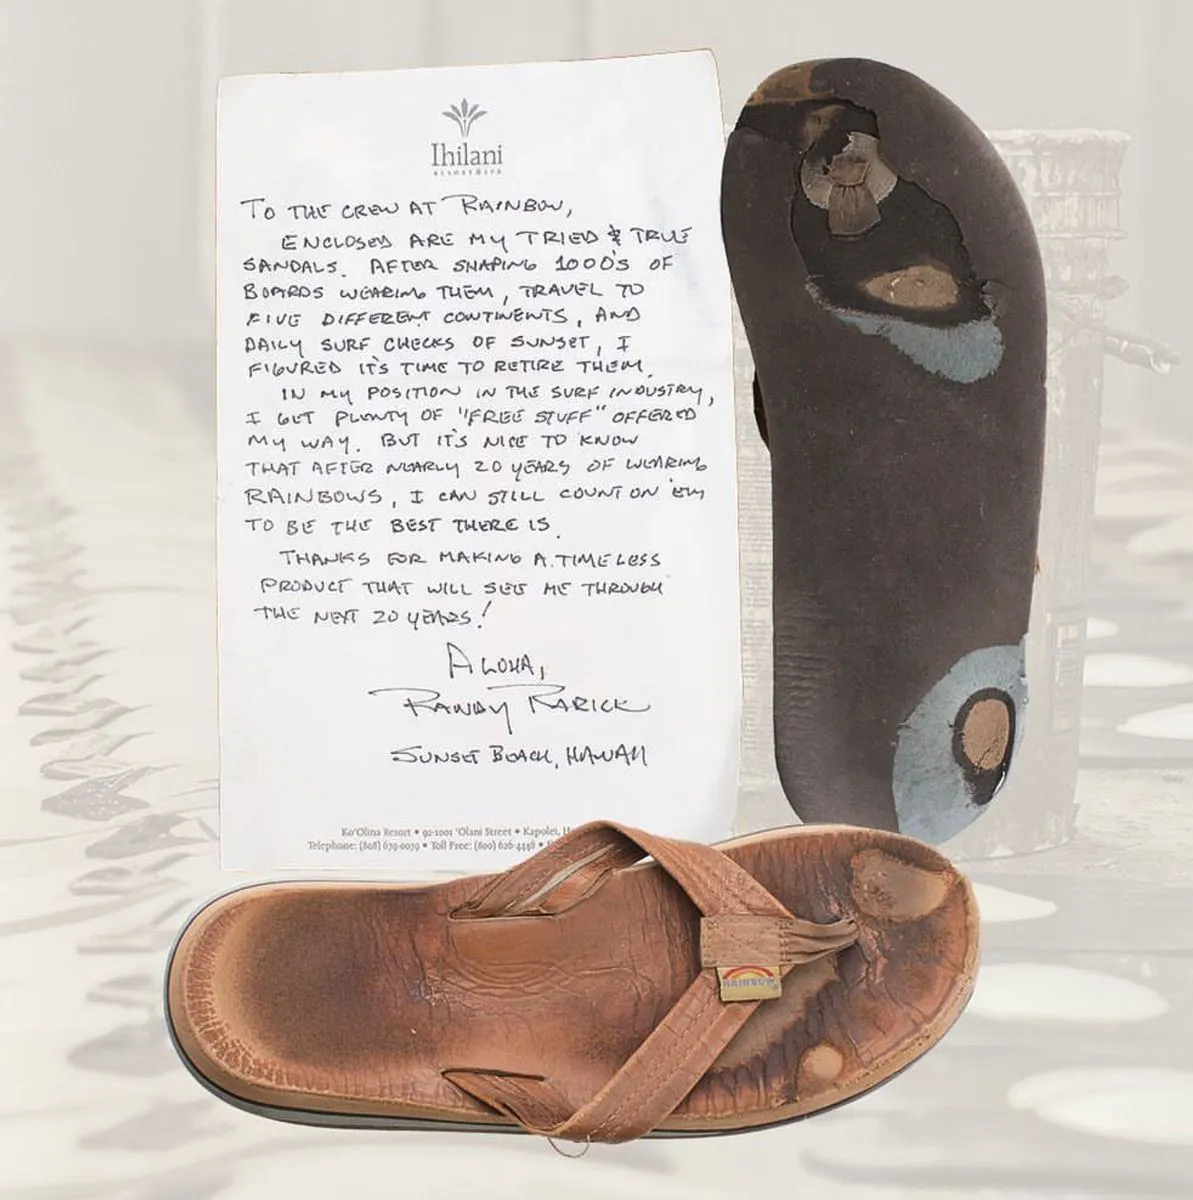 Ihilani
RESORT & SPA
TO THE CREW AT RAINBOW,
ENCLOSED ARE MY TRIED & TRUE
SANDALS. AFTER SHAPING 1000'S OF
BOARDS WEARING THEM, TRAVEL TO
FIVE DIFFERENT CONTINENTS, AND
DAILY SURF CHECKS OF SUNSET, I
FIGURED IT'S TIME TO RETIRE THEM.
IN MY POSITION IN THE SURF INDUSTRY,
I GET PLENTY OF "FREE STUFF" OFFERED
MY WAY. BUT IT'S NICE TO KNOW
THAT AFTER NEARLY 20 YEARS OF WEARING
RAINBOWS, I CAN STILL COUNT ON 'EM
TO BE THE BEST THERE IS.
THANKS FOR MAKING A TIMELESS
PRODUCT THAT WILL SEE ME THROUGH
THE NEXT 20 YEARS!
ALOHA,
RANDY RARICK
SUNSET BEACH, HAWAII
Ko'Olina Resort • 92-1001 'Olani Street • Kapolei,
Telephone: (808) 679-0079 • Toll Free: (800) 626-4446 •
RAINBOW